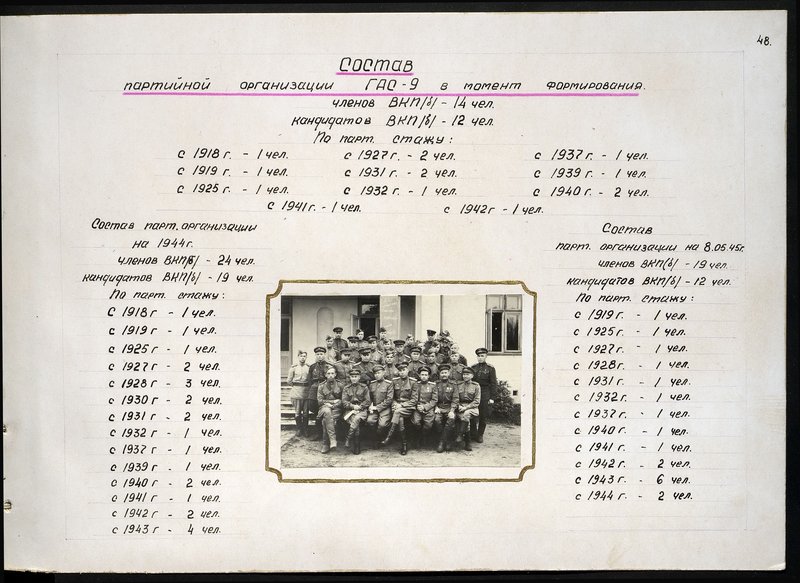 48.
Состав
партийной организации ГАС-9 в момент формирования.
членов ВКП/б/ - 14 чел.
кандидатов ВКП/б/ - 12 чел.
По парт. стажу:
с 1918 г. - 1 чел. с 1927 г. - 2 чел. с 1937 г. - 1 чел.
с 1919 г. - 1 чел. с 1931 г. - 2 чел. с 1939 г. - 1 чел.
с 1925 г. - 1 чел. с 1932 г. - 1 чел. с 1940 г. - 2 чел.
с 1941 г. - 1 чел. с 1942 г - 1 чел.
Состав парт. организации
на 1944 г.
членов ВКП/б/ - 24 чел.
кандидатов ВКП/б/ - 19 чел.
По парт. стажу:
с 1918 г - 1 чел.
с 1919 г - 1 чел.
с 1925 г - 1 чел.
с 1927 г - 2 чел.
с 1928 г - 3 чел.
с 1930 г - 2 чел.
с 1931 г - 2 чел.
с 1932 г - 1 чел.
с 1937 г - 1 чел.
с 1939 г - 1 чел.
с 1940 г - 2 чел.
с 1941 г - 1 чел.
с 1942 г - 2 чел.
с 1943 г - 4 чел.
Состав
парт. организации на 8.05.45г.
членов ВКП/б/ - 19 чел.
кандидатов ВКП/б/ - 12 чел.
По парт. стажу:
с 1919 г. - 1 чел.
с 1925 г. - 1 чел.
с 1927 г. - 1 чел.
с 1928 г. - 1 чел.
с 1931 г. - 1 чел.
с 1932 г. - 1 чел.
с 1937 г. - 1 чел.
с 1940 г. - 1 чел.
с 1941 г. - 1 чел.
с 1942 г. - 2 чел.
с 1943 г. - 6 чел.
с 1944 г. - 2 чел.